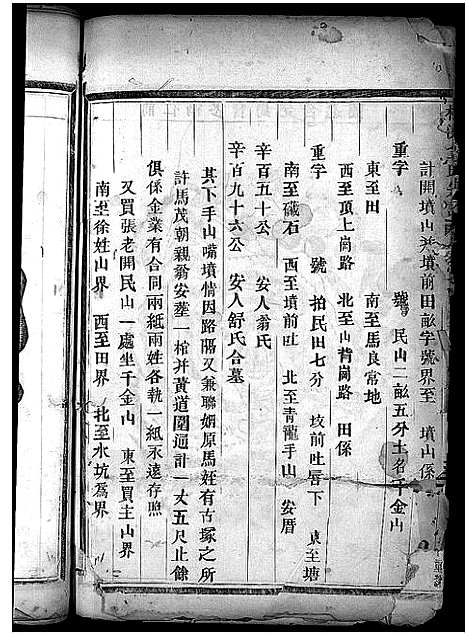 計開墳山並墳前田畝字號界至　墳山係
重字　　號　民山二畝五分土名千金山
東至田　　　南至馬良常地
西至頂上崗路　北至山背崗路　田係
重字　　號　拍民田七分　坟前吐唇下　東至塘
南至磡石　西至墳前吐　北至青龍手山　安厝
辛百五十公　安人翁氏
辛百九十六公　安人舒氏合墓
其下手山嘴墳情因路隔又兼聯姻原馬姓有古塚之所
許馬茂朝親翁安塟一棺并黃道圍通計一丈五尺止餘
俱係金業有合同兩紙兩姓各執一紙永遠存照
又買張老開民山一處坐千金山　東至買主山界
南至徐姓山界　西至田界　北至水坑為界